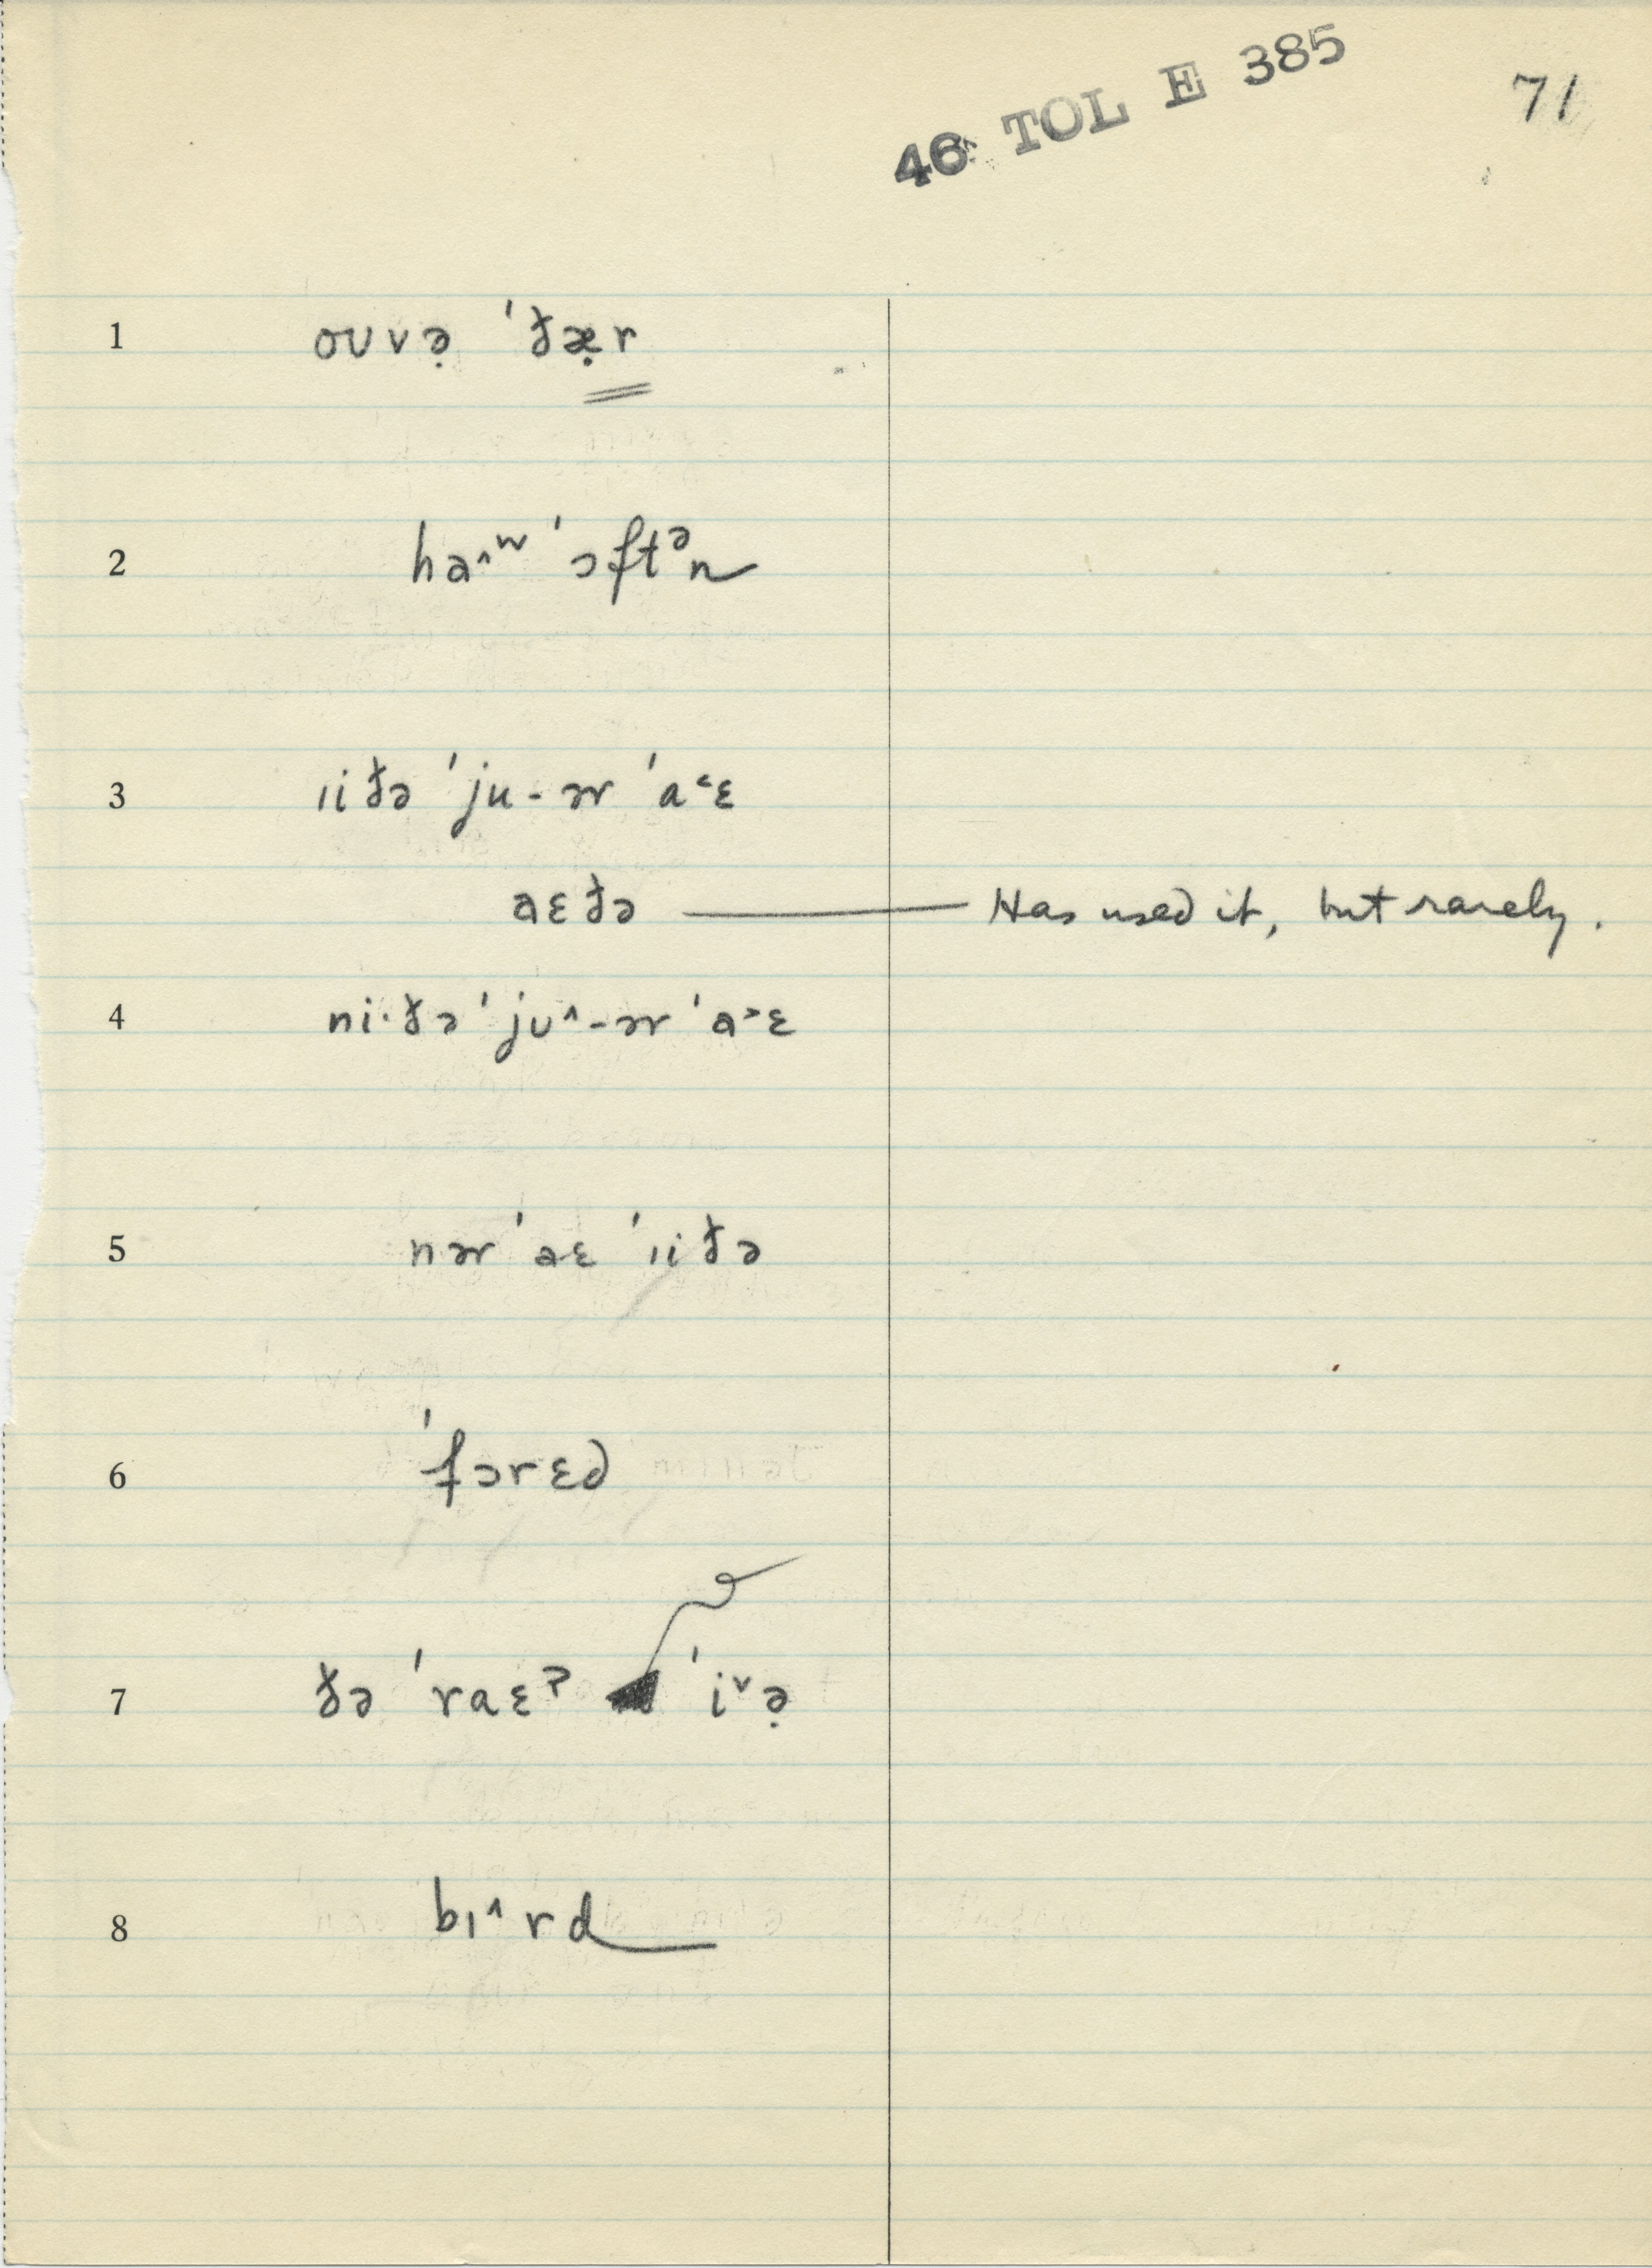 46 TOL E 385
71
1 oʊvə̣ ˈðæ̣r
2 ha^ʷ ˈɔftᵊn
3 ıiðə ˈju-ər ˈa˂ɛ
aɛðə — Has used it, but rarely.
4 ni·ðə ˈjʊ^-ər ˈa˃ɛ
5 nər ˈaɛ ˈıiðə
6 ˈfɔrɛd
7 ðə ˈraɛˀ ˈi˅ə̣
8 bɪ^rd